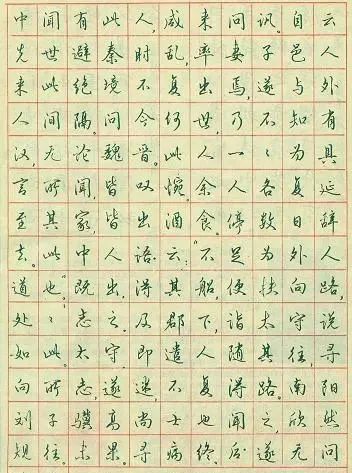 中闻有此人,咸来问讯。自云
先世避秦时乱,率妻子邑人
来此绝境不复出焉,遂与外
人间隔。问今何世,乃不知有
汉,无论魏晋。此人一一为具
言所闻,皆叹惋。余人各复延
至其家皆出酒食。停数日辞
去。此中人语云:“不足为外人
道也。”既出,得其船,便扶向路,
处处志之。及郡下,诣太守说
如此。太守即遣人随其往,寻
向所志,遂迷,不复得路。南阳
刘子骥高尚士也闻之,欣然
规往。未果。寻病终。后遂无问